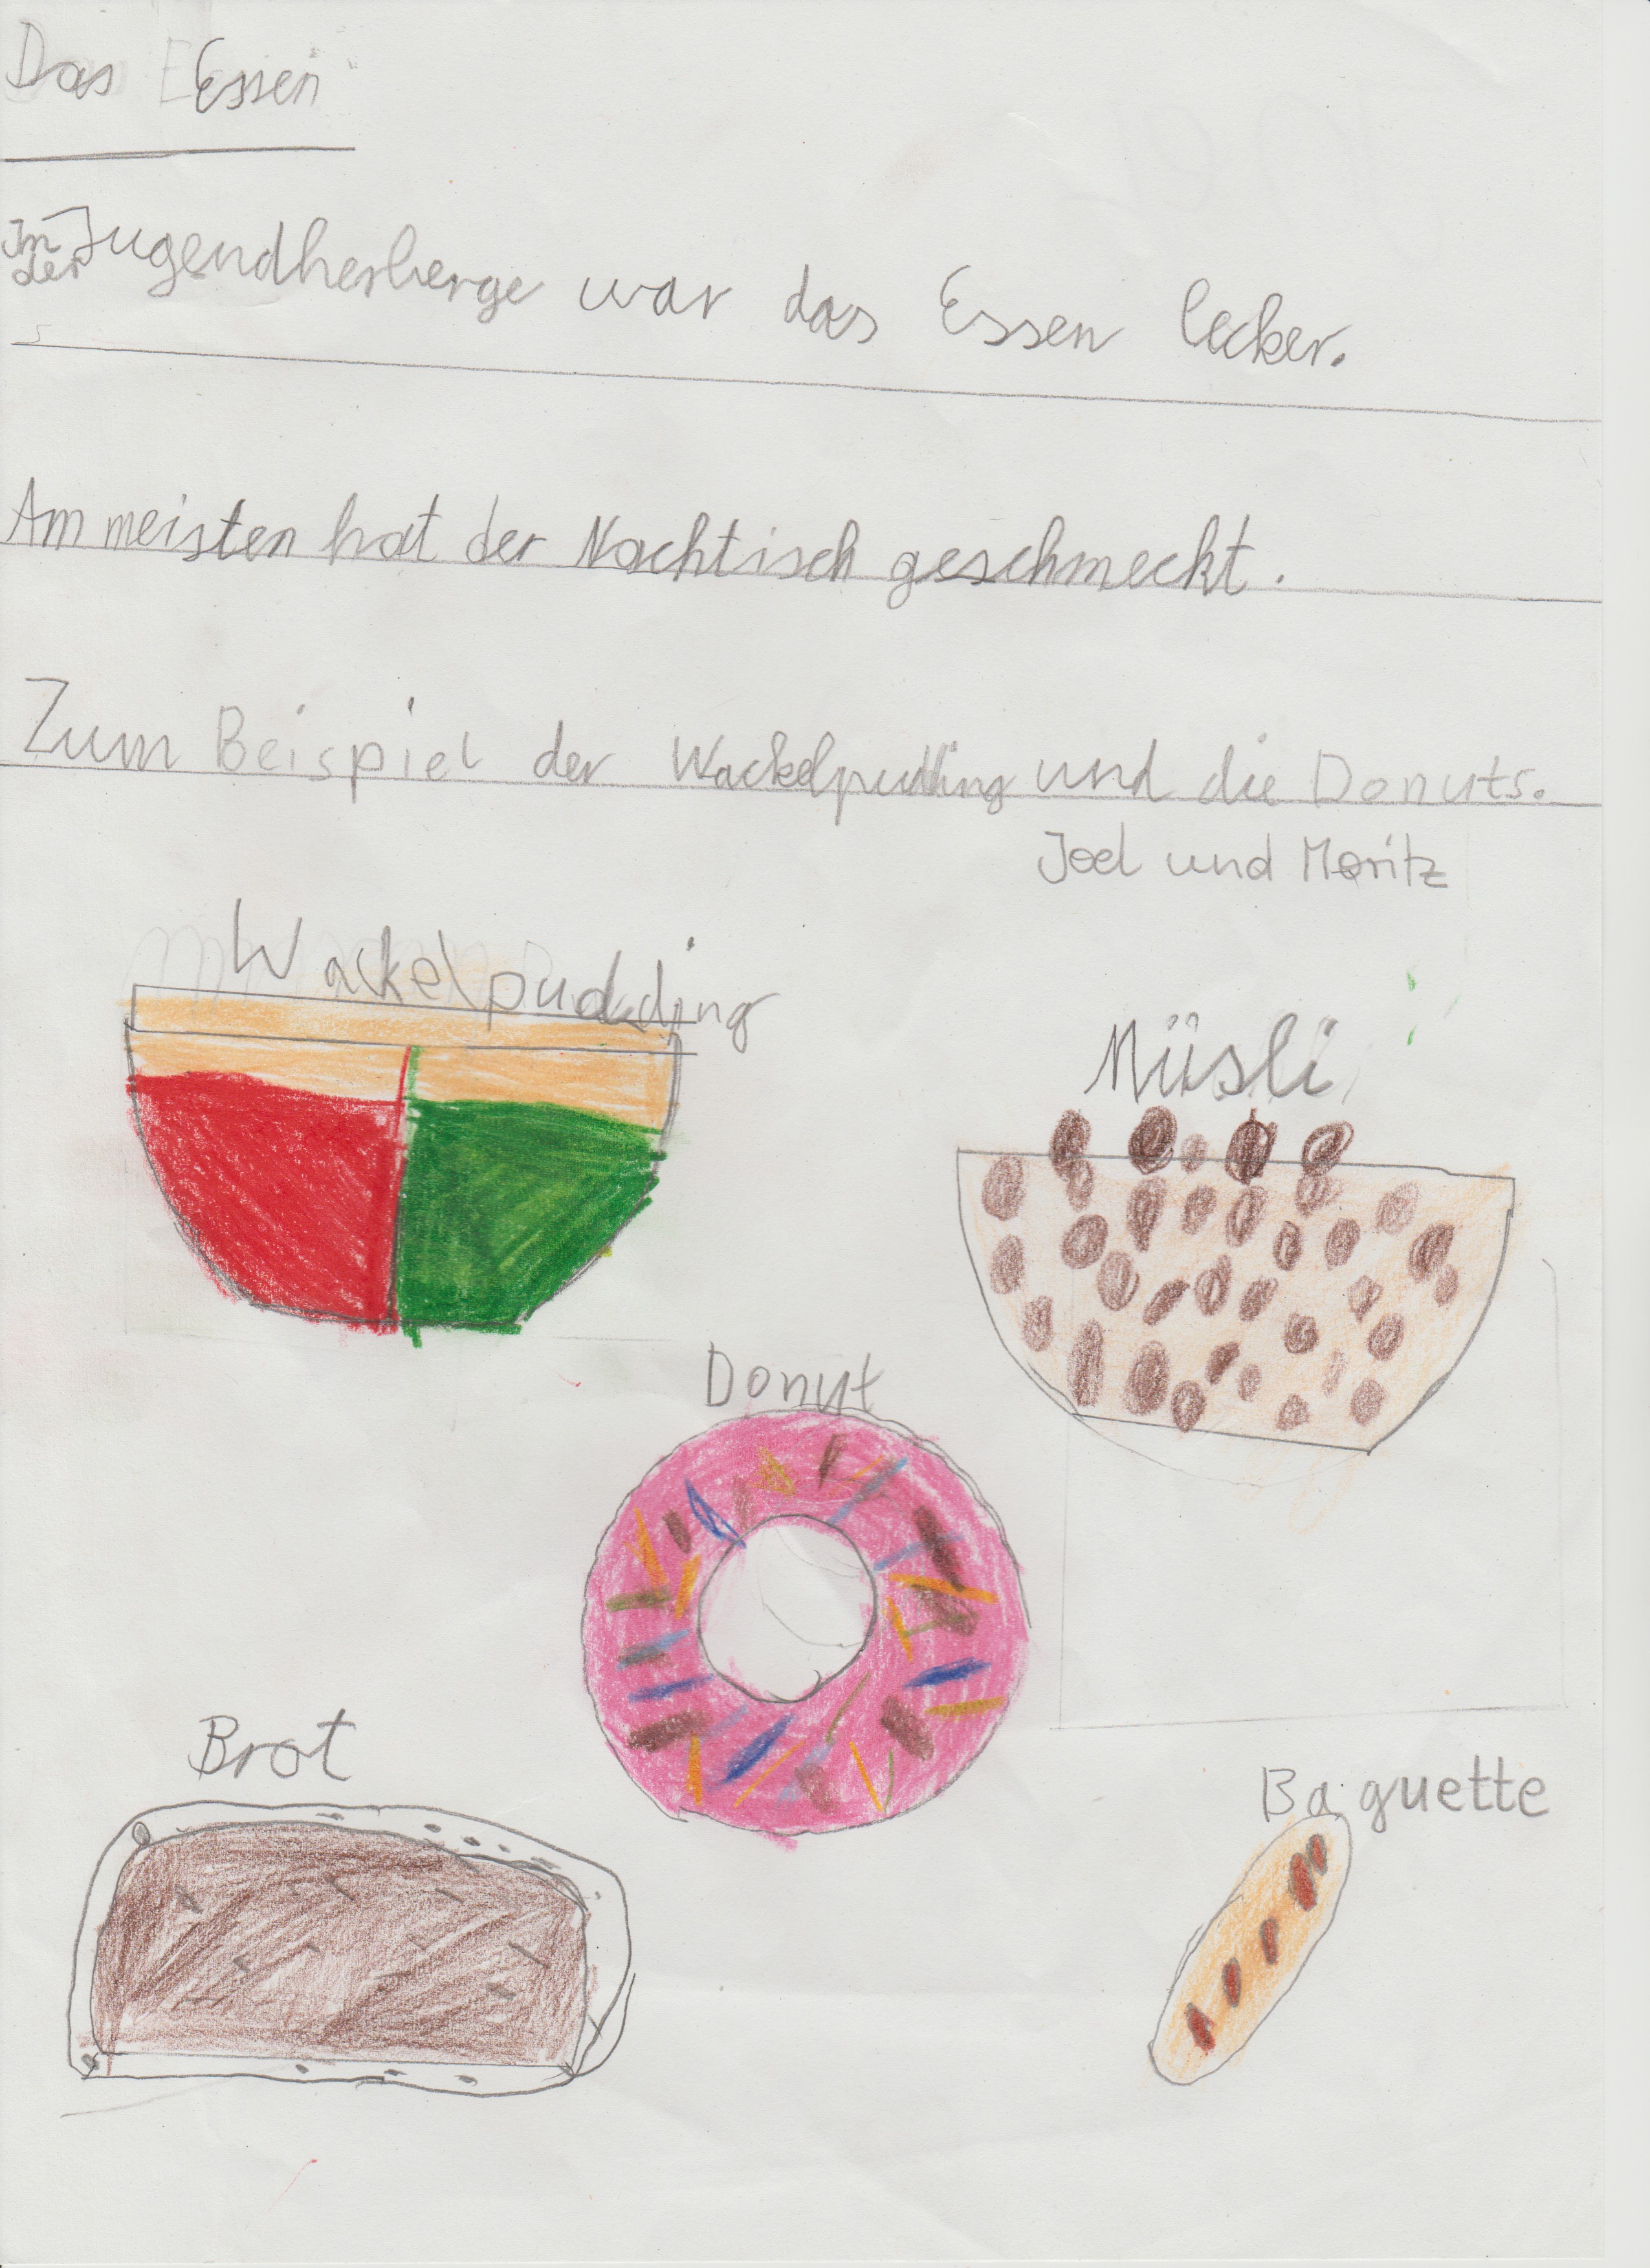 Das Essen
In der Jugendherberge war das Essen lecker.
Am meisten hat der Nachtisch geschmeckt.
Zum Beispiel der Wackelpudding und die Donuts.
Joel und Moritz
Wackelpudding
Müsli
Donut
Brot
Baguette